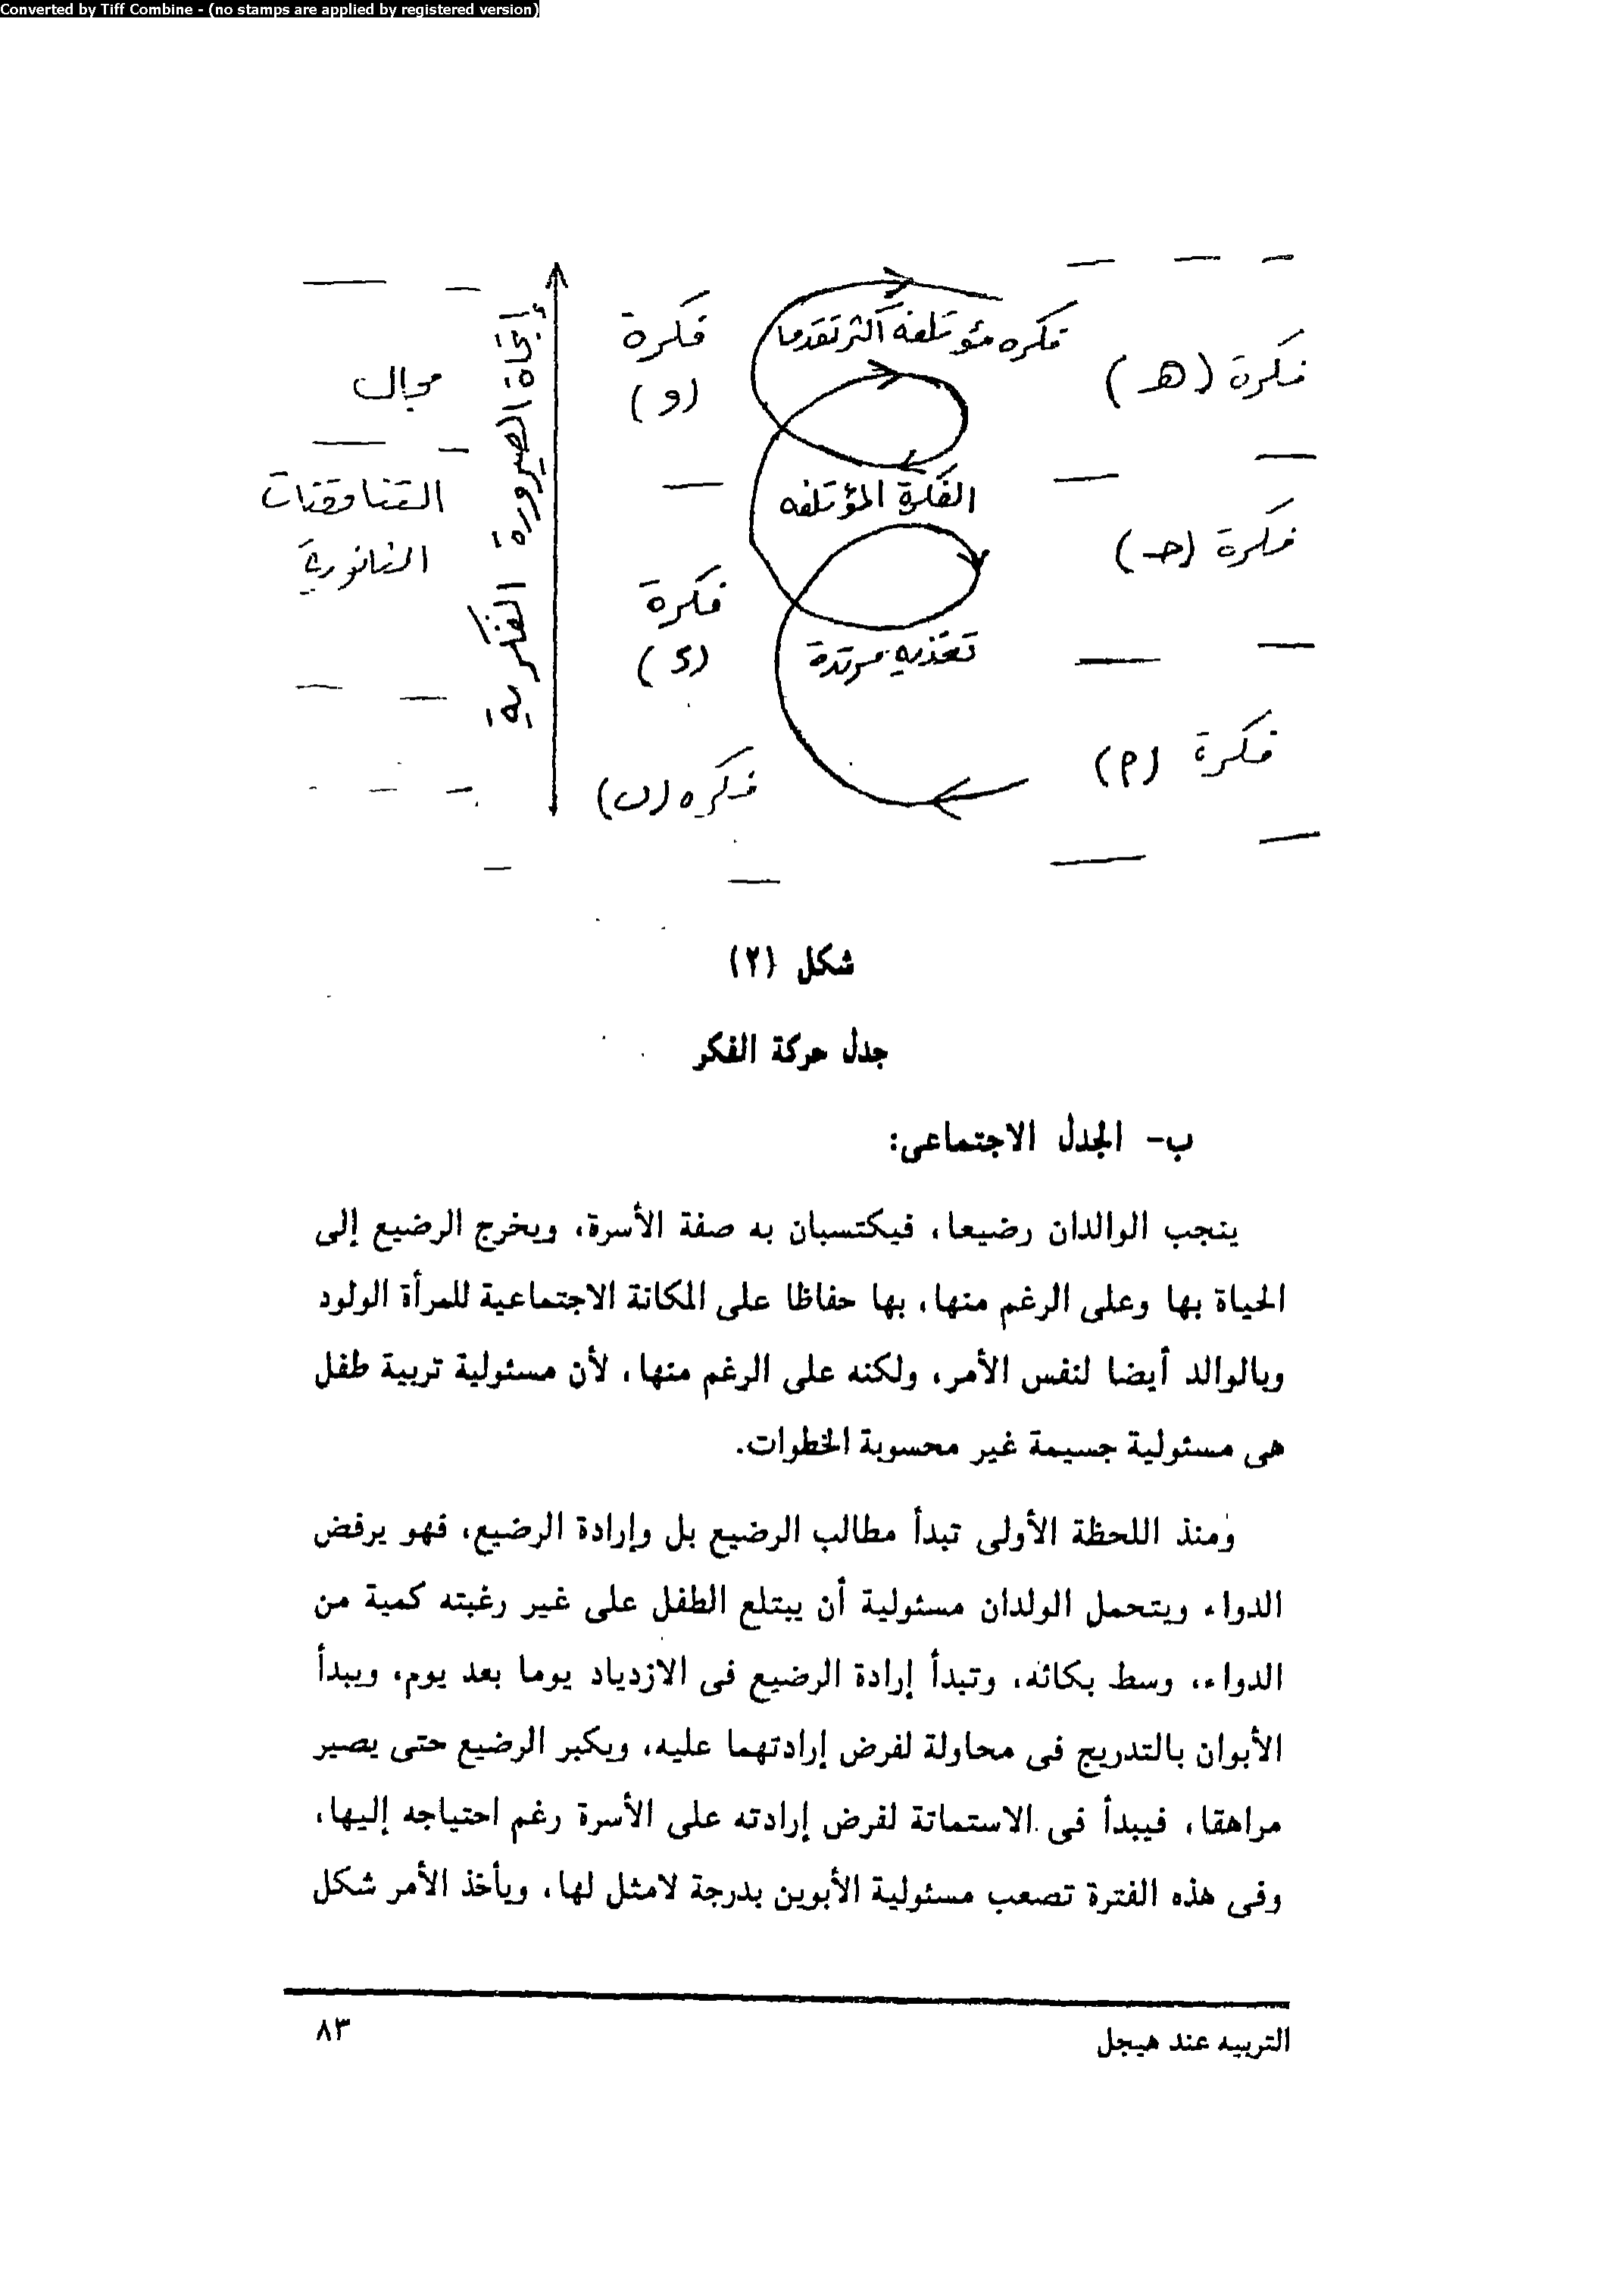 Converted by Tiff Combine - (no stamps are applied by registered version)
فكرة (هـ)
فكره مؤتلفه أكثر تقدما
فكرة
(و)
إتجاة الصيرورة الفكرية
مجال
التناقضات
الثانوية
فكرة (حـ)
الفكرة المؤتلفه
فكرة
(د)
تغذيه مرتدة
فكرة (م)
فكره (ب)
شكل (٢)
جدل حركة الفكر
ب- الجدل الاجتماعى:
ينجب الوالدان رضيعا، فيكتسبان به صفة الأسرة، ويخرج الرضيع إلى
الحياة بها وعلى الرغم منها، بها حفاظا على المكانة الاجتماعية للمرأة الولود
وبالوالد أيضا لنفس الأمر، ولكنه على الرغم منها، لأن مسئولية تربية طفل
هى مسئولية جسيمة غير محسوبة الخطوات.
ومنذ اللحظة الأولى تبدأ مطالب الرضيع بل وإرادة الرضيع، فهو يرفض
الدواء ويتحمل الولدان مسئولية أن يبتلع الطفل على غير رغبته كمية من
الدواء، وسط بكائه، وتبدأ إرادة الرضيع فى الازدياد يوما بعد يوم، ويبدأ
الأبوان بالتدريج فى محاولة لفرض إرادتهما عليه، ويكبر الرضيع حتى يصير
مراهقا، فيبدأ فى الاستماتة لفرض إرادته على الأسرة رغم احتياجه إليها،
وفى هذه الفترة تصعب مسئولية الأبوين بدرجة لامثل لها، ويأخذ الأمر شكل
التربيه عند هيجل
٨٣